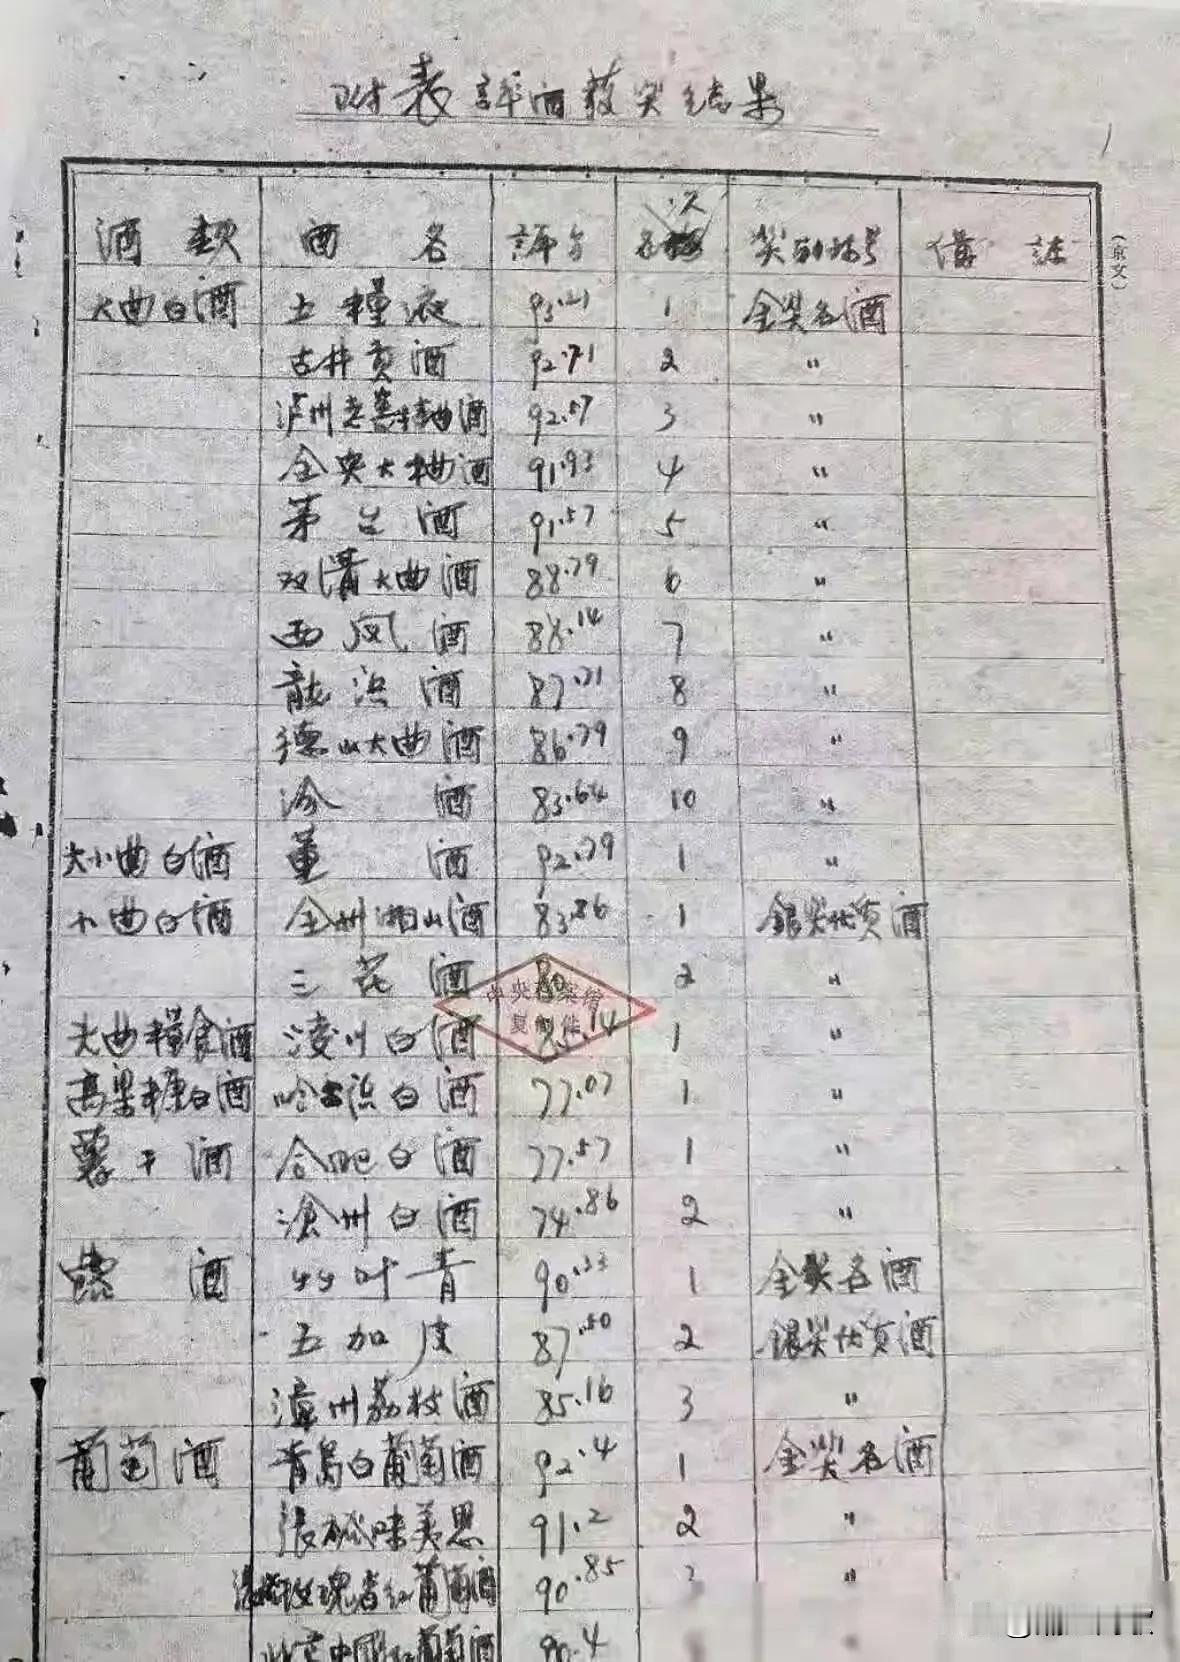 附表 評酒获奖结果
酒類 酒名 評分 名次 奖别称号 備註
(京文)
大曲白酒 五糧液 93.21 1 金奖名酒
古井贡酒 92.71 2 〃
泸州老窖特曲酒 92.57 3 〃
全兴大曲酒 91.93 4 〃
茅台酒 91.57 5 〃
双溝大曲酒 88.79 6 〃
西凤酒 88.14 7 〃
龍滨酒 87.71 8 〃
德山大曲酒 86.79 9 〃
汾酒 83.64 10 〃
大小曲白酒 董酒 92.79 1 〃
小曲白酒 全州湘山酒 83.86 1 銀奖优质酒
三花酒 80 2 〃
中央档案馆
复制件
大曲糧食酒 凌川白酒 14 1 〃
高粱糠白酒 哈尔滨白酒 77.07 1 〃
薯干酒 合肥白酒 77.57 1 〃
滄州白酒 74.86 2 〃
露酒 竹叶青 90.33 1 金奖名酒
五加皮 87.50 2 银奖优质酒
漳州荔枝酒 85.16 3 〃
葡萄酒 青島白葡萄酒 92.4 1 金奖名酒
張裕味美思 91.2 2 〃
玫瑰香红葡萄酒 90.85 3 〃
北京中国红葡萄酒 90.4 〃